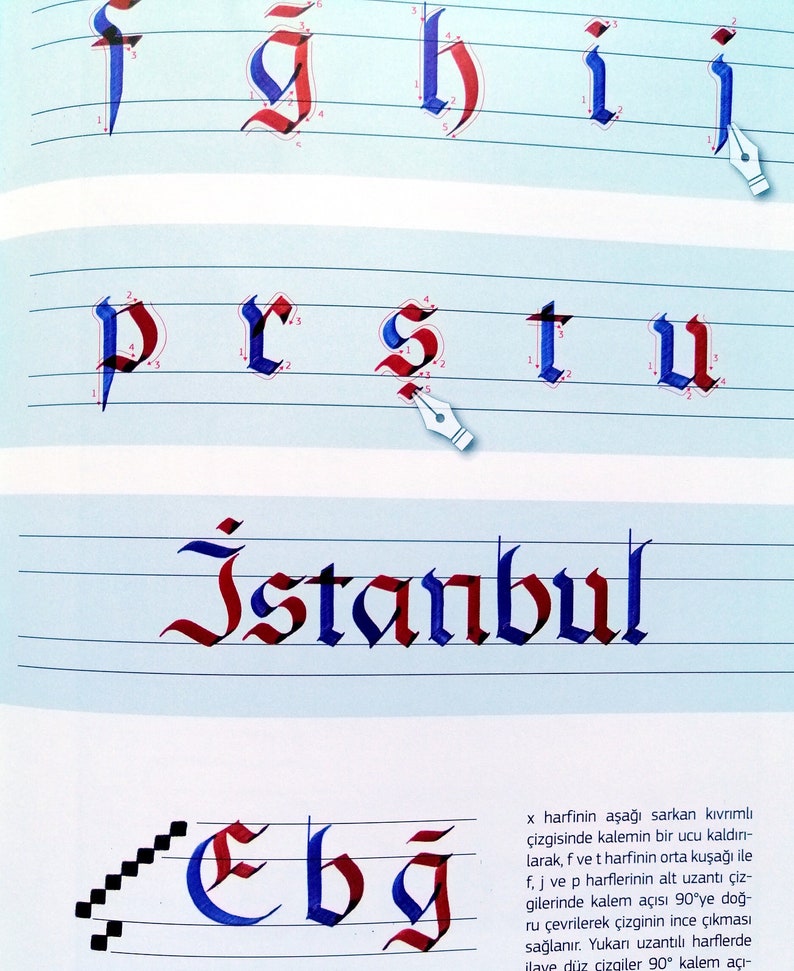 f ğ h i j
p r ş t u
İstanbul
E b ğ
x harfinin aşağı sarkan kıvrımlı
çizgisinde kalemin bir ucu kaldırı-
larak, f ve t harfinin orta kuşağı ile
f, j ve p harflerinin alt uzantı çiz-
gilerinde kalem açısı 90°ye doğ-
ru çevrilerek çizginin ince çıkması
sağlanır. Yukarı uzantılı harflerde
ilave düz çizgiler 90° kalem açı-